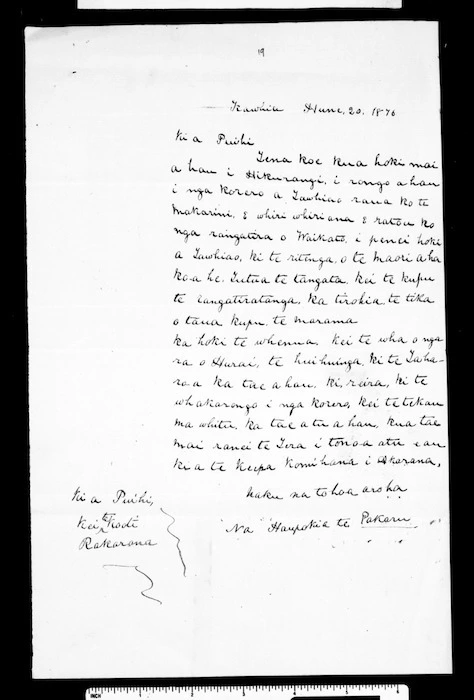 19
Kawhia Hune, 20. 1876
Ki a Puihi
Tena koe kua hoki mai
ahau i Hikurangi, i rongo ahau
i nga korero a Tawhiao raua ko te
Makarini, E whiriwhiriana E ratou ko
nga rangatira o Waikato, i penei hoki
a Tawhiao, ki te ritenga, o te maori aha
koa he. Tutua te tangata. Kei te kupu
te rangatiratanga, ka tirohia te tika
o taua kupu. te marama
ka hoki te whenua. Kei te wha o nga
ra o Hurai, te huihuinga, ki te Taha-
roa ka tae ahau, ki, reira, ki te
whakarongo i nga korero, kei te tekau
ma whitu, ka tae atu ahau, kua tae
mai ranei te Tera i tonoa atu e au
ki a te Keepa Komihana i Akarana,
Naku na to hoa aroha
Na Haupokia te Pakaru
Ki a Puihi,
Kei te Kooti
Rakarona
INCH 1 2 3 4